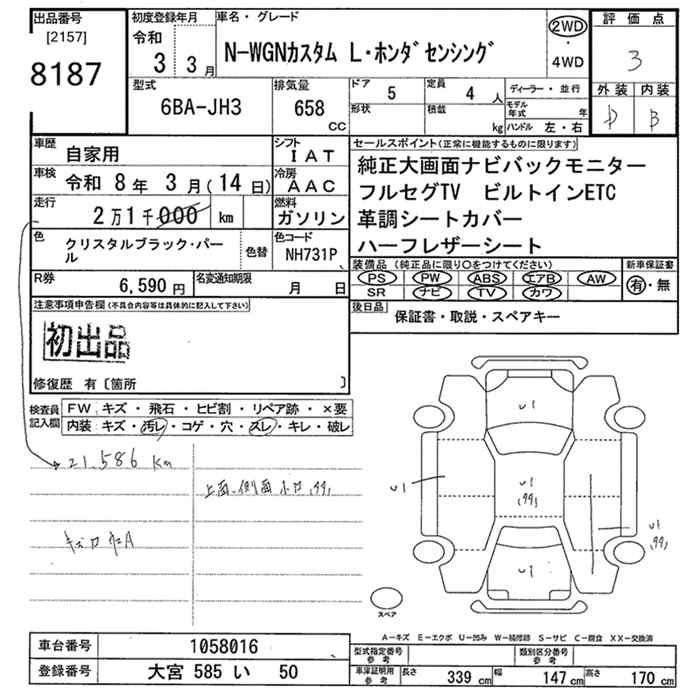 出品番号
[2157]
8187
初度登録年月
令和
3 3月
車名・グレード
N-WGNカスタム L・ホンダセンシング
2WD
・
4WD
評価点
3
外装 内装
D B
型式
6BA-JH3
排気量
658
CC
ドア 5
定員 4 人
形状
積載 kg
ディーラー・並行
モデル年式 年
ハンドル 左・右
車歴 自家用
シフト IAT
車検 令和 8年 3月(14日)
冷房 AAC
走行 2万1千000 km
燃料 ガソリン
色 クリスタルブラック・パール
色替
色コード NH731P
R券 6,590円
名変通知期限 月 日
セールスポイント(正常に機能するものに限ります)
純正大画面ナビバックモニター
フルセグTV ビルトインETC
革調シートカバー
ハーフレザーシート
装備品 (純正品に限り○をつけてください)
PS PW ABS エアB AW
SR ナビ TV カワ
新車保証書
有・無
後日品 保証書・取説・スペアキー
注意事項申告欄(不具合内容等は具体的に記入して下さい)
初出品
修復歴 有〔箇所 〕
検査員記入欄
FW キズ・飛石・ヒビ割・リペア跡・×要
内装 キズ・汚レ・コゲ・穴・スレ・キレ・破レ
21.586 Km
上面、側面
U1
U1
U1
U1
U1
スペア
A－キズ E－エクボ U－凹み W－補修跡 S－サビ C－腐食 XX－交換済
車台番号 1058016
登録番号 大宮 585 い 50
型式指定番号 参考
類別区分番号 参考
車庫証明用 参考
長さ 339 cm
幅 147 cm
高さ 170 cm